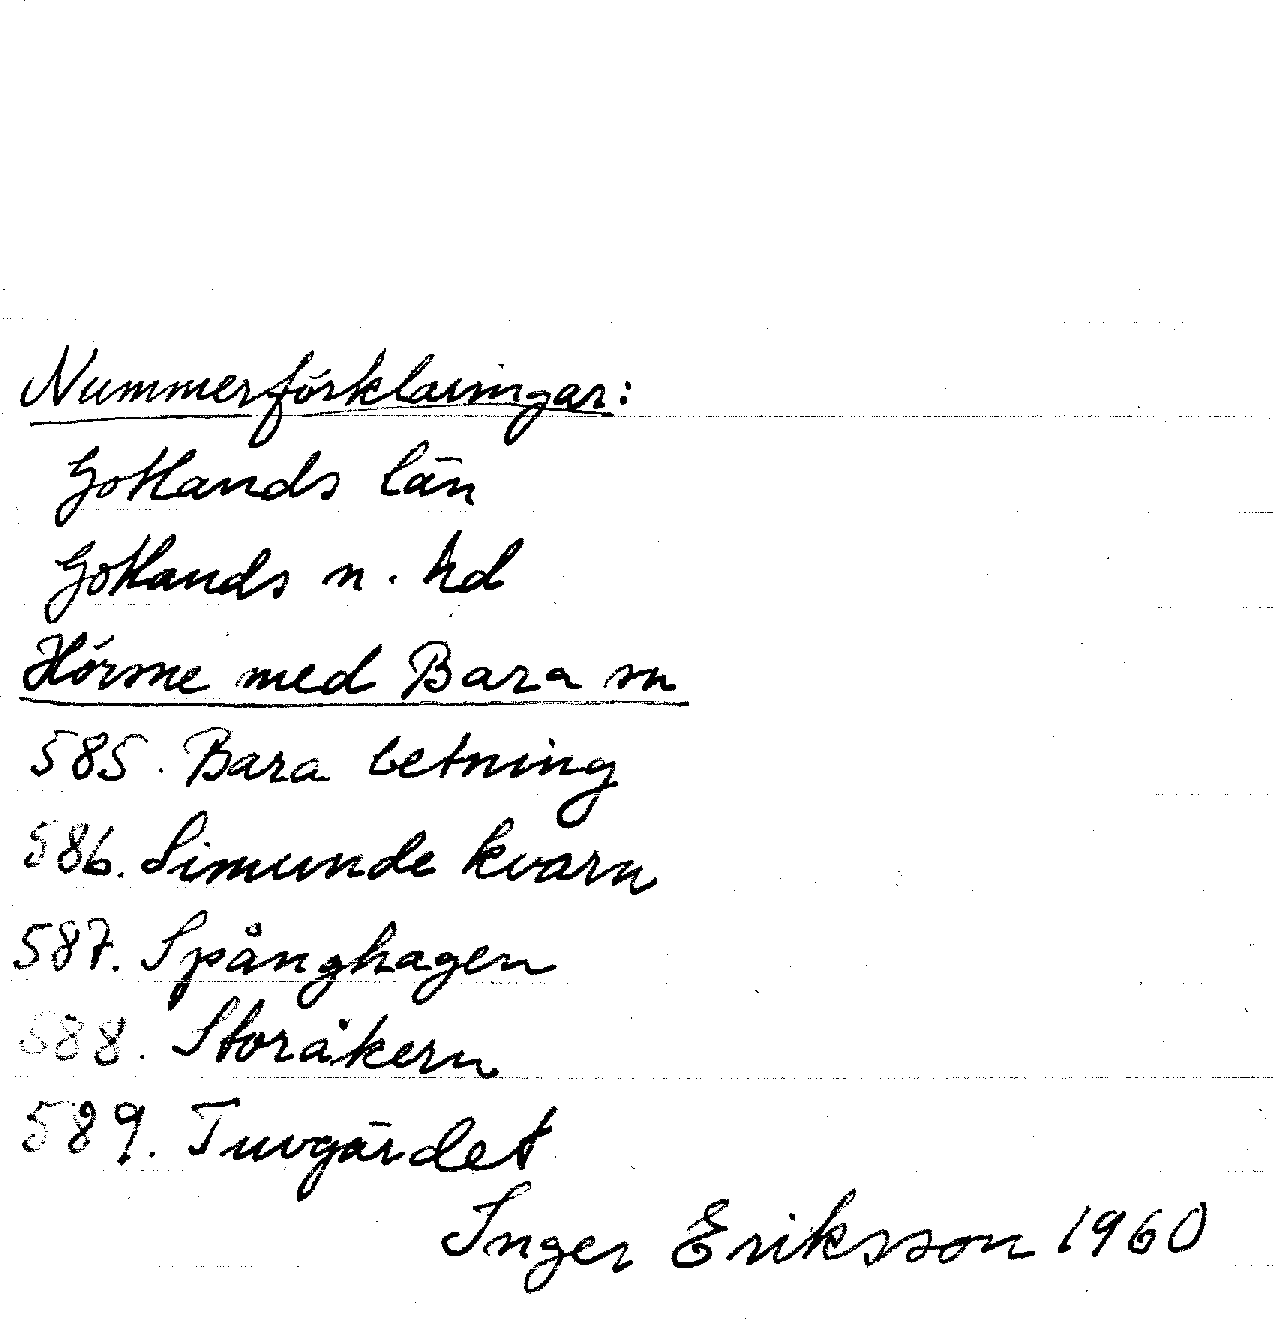 Nummerförklaringar:
Gotlands län
Gotlands n. hd
Hörsne med Bara sn
585. Bara betning
586. Simunde kvarn
587. Spånghagen
588. Storåkern
589. Tuvgärdet
Inger Eriksson 1960